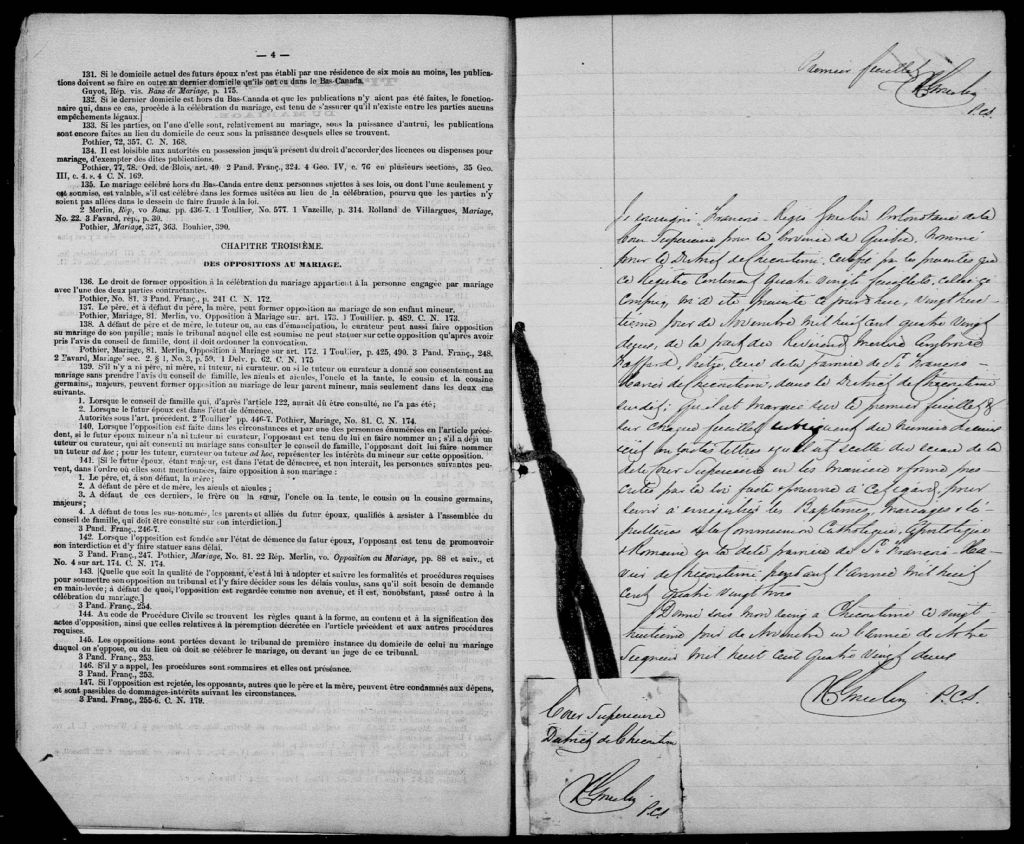 — 4 —
131. Si le domicile actuel des futurs époux n'est pas établi par une résidence de six mois au moins, les publica-
tions doivent se faire en outre au dernier domicile qu'ils ont eu dans le Bas-Canada.
Guyot, Rép. vis. Bans de Mariage, p. 175.
132. Si le dernier domicile est hors du Bas-Canada et que les publications n'y aient pas été faites, le fonction-
naire qui, dans ce cas, procède à la célébration du mariage, est tenu de s'assurer qu'il n'existe entre les parties aucuns
empêchements légaux.]
133. Si les parties, ou l'une d'elle sont, relativement au mariage, sous la puissance d'autrui, les publications
sont encore faites au lieu du domicile de ceux sous la puissance desquels elles se trouvent.
Pothier, 72, 357. C. N. 168.
134. Il est loisible aux autorités en possession jusqu'à présent du droit d'accorder des licences ou dispenses pour
mariage, d'exempter des dites publications.
Pothier, 77, 78. Ord. de Blois, art. 40. 2 Pand. Franç., 324. 4 Geo. IV, c. 76 en plusieurs sections, 35 Geo.
III, c. 4. s. 4 C. N. 169.
135. Le mariage célébré hors du Bas-Canda entre deux personnes sujettes à ses lois, ou dont l'une seulement y
est soumise, est valable, s'il est célébré dans les formes usitées au lieu de la célébration, pourvu que les parties n'y
soient pas allées dans le dessein de faire fraude à la loi.
2 Merlin, Rép, vo Bans. pp. 436-7. 1 Toullier, No. 577. 1 Vazeille, p. 314. Rolland de Villargues, Mariage,
No. 22. 3 Favard, rep., p. 30.
Pothier, Mariage, 327, 363. Bouhier, 390.
CHAPITRE TROISIÈME.
DES OPPOSITIONS AU MARIAGE.
136. Le droit de former opposition à la célébration du mariage appartient à la personne engagée par mariage
avec l'une des deux parties contractantes.
Pothier, No. 81. 3 Pand. Franç., p. 241 C. N. 172.
137. Le père, et à défaut du père, la mère, peut former opposition au mariage de son enfant mineur.
Pothier, Mariage, 81. Merlin, vo. Opposition à Mariage sur. art. 173. 1 Toullier, p. 489. C. N. 173.
138. A défaut de père et de mère, le tuteur ou, au cas d'émancipation, le curateur peut aussi faire opposition
au mariage de son pupille; mais le tribunal auquel elle est soumise ne peut statuer sur cette opposition qu'après avoir
pris l'avis du conseil de famille, dont il doit ordonner la convocation.
Pothier, Mariage, 81. Merlin, Opposition à Mariage sur art. 172. 1 Toulier, p. 425, 490. 3 Pand. Franç., 248.
2 Favard, Mariage' sec. 2. § 1, No. 3, p. 59. 1 Delv. p. 62. C. N. 175
139. S'il n'y a ni père, ni mère, ni tuteur, ni curateur, ou si le tuteur ou curateur a donné son consentement au
mariage sans prendre l'avis du conseil de famille, les aïeuls et aïeules, l'oncle et la tante, le cousin et la cousine
germains, majeurs, peuvent former opposition au mariage de leur parent mineur, mais seulement dans les deux cas
suivants.
1. Lorsque le conseil de famille qui, d'après l'article 122, aurait dû être consulté, ne l'a pas été;
2. Lorsque le futur époux est dans l'état de démence.
Autorités sous l'art. précédent. 2 Toullier' pp. 446-7. Pothier, Mariage, No. 81. C. N. 174.
140. Lorsque l'opposition est faite dans les circonstances et par une des personnes énumérées en l'article précé-
dent, si le futur époux mineur n'a ni tuteur ni curateur, l'opposant est tenu de lui en faire nommer un; s'il a déjà un
tuteur ou curateur, qui ait consenti au mariage sans consulter le conseil de famille, l'opposant doit lui faire nommer
un tuteur ad hoc; pour les tuteur, curateur ou tuteur ad hoc, représenter les intérêts du mineur sur cette opposition.
141. [Si le futur époux, étant majeur, est dans l'état de démence, et non interdit, les personnes suivantes peu-
vent, dans l'ordre où elles sont mentionnées, faire opposition à son mariage:
1. Le père, et, à son défaut, la mère;
2. A défaut de père et de mère, les aïeuls et aïeules;
3. A défaut de ces derniers, le frère ou la sœur, l'oncle ou la tente, le cousin ou la cousine germains,
majeurs;
4. A défaut de tous les sus-nommés, les parents et alliés du futur époux, qualifiés à assister à l'assemblée du
conseil de famille, qui doit être consulté sur son interdiction.]
3 Pand. Franç., 246-7.
142. Lorsque l'opposition est fondée sur l'état de démence du futur époux, l'opposant est tenu de promouvoir
son interdiction et d'y faire statuer sans délai.
3 Pand. Franç., 247. Pothier, Mariage, No. 81. 22 Rép. Merlin, vo. Opposition au Mariage, pp. 88 et suiv., et
No. 4 sur art. 174. C. N. 174.
143. [Quelle que soit la qualité de l'opposant, c'est à lui à adopter et suivre les formalités et procédures requises
pour soumettre son opposition au tribunal et l'y faire décider sous les délais voulus, sans qu'il soit besoin de demande
en main-levée; à défaut de quoi, l'opposition est regardée comme non avenue, et il est, nonobstant, passé outre à la
célébration du mariage.]
3 Pand. Franç., 254.
144. Au code de Procédure Civile se trouvent les règles quant à la forme, au contenu et à la signification des
actes d'opposition, ainsi que celles relatives à la péremption décrétée en l'article précédent et aux autres procédures
requises.
145. Les oppositions sont portées devant le tribunal de première instance du domicile de celui au mariage
duquel on s'oppose, ou du lieu où doit se célébrer le mariage, ou devant un juge de ce tribunal.
3 Pand. Franç., 253.
146. S'il y a appel, les procédures sont sommaires et elles ont préséance.
3 Pand. Franç., 253.
147. Si l'opposition est rejetée, les opposants, autres que le père et la mère, peuvent être condamnés aux dépens,
et sont passibles de dommages-intérêts suivant les circonstances.
3 Pand. Franç., 255-6. C. N. 179.
Premier feuillet
P.C.S.
Je soussigné, François-Régis Gosselin Protonotaire de la
Cour Supérieure pour la Province de Québec, nommé
pour le District de Chicoutimi, certifie par les présentes que
ce Registre contenant quatre vingt feuillets, celui-ci
compris, m'a été présenté ce jourd'hui, vingt hui-
tième jour de Novembre mil huit cent quatre vingt
deux, de la part du Révérend Messire Ambroise
Fafard, Prêtre, Curé de la paroisse de St. François-
Xavier de Chicoutimi, dans le District de Chicoutimi
susdit; qu'il est marqué sur le premier feuillet &
sur chaque feuillet subséquent du numéro d'icelui
écrit en toutes lettres & qu'il est scellé du sceau de la
dite Cour Supérieure en la manière & forme pres-
crites par la loi faite & pourvue à cet égard, pour
servir à enregistrer les Baptêmes, Mariages & Sé-
pultures de la Communion Catholique, Apostolique
& Romaine en la dite paroisse de St. François-Xa-
vier de Chicoutimi pendant l'année mil huit
cent quatre vingt trois
Donné sous mon seing à Chicoutimi ce vingt
huitième jour de Novembre en l'année de Notre
Seigneur mil huit cent quatre vingt deux
P.C.S.
Cour Supérieure
District de Chicoutimi
P.C.S.